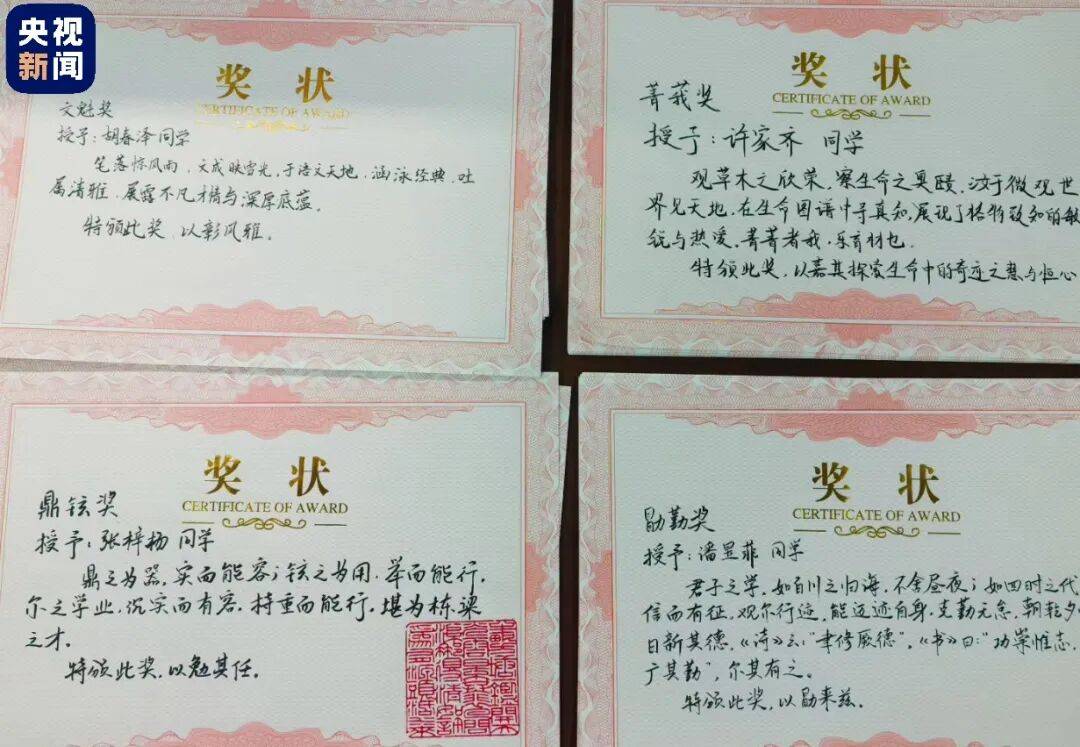 央视
新闻
奖状
CERTIFICATE OF AWARD
文魁奖
授予:胡春泽同学
笔落惊风雨,文成映雪光,于语文天地,涵泳经典,吐
属清雅,展露不凡才情与深厚底蕴。
特颁此奖,以彰风雅。
奖状
CERTIFICATE OF AWARD
菁莪奖
授予:许家齐 同学
观草木之欣荣,察生命之奥赜,汝于微观世
界见天地,在生命图谱中寻真知,展现了格物致知的敏
锐与热爱,菁菁者莪,乐育材也。
特颁此奖,以嘉其探索生命中的奇迹之慧与恒心
奖状
CERTIFICATE OF AWARD
鼎铉奖
授予:张梓扬 同学
鼎之为器,实而能容;铉之为用,举而能行,
尔之学业,沉实而有容,持重而能行,堪为栋梁
之才。
特颁此奖,以勉其任。
奖状
CERTIFICATE OF AWARD
勖勤奖
授予:潘昱菲 同学
君子之学,如百川之归海,不舍昼夜;如四时之代
信而有征,观尔行迹,能迈迹自身,克勤无怠,朝乾夕
日新其德,《诗》云:"聿修厥德",《书》曰:"功崇惟志,
广其勤",尔其有之。
特颁此奖,以勖来兹。